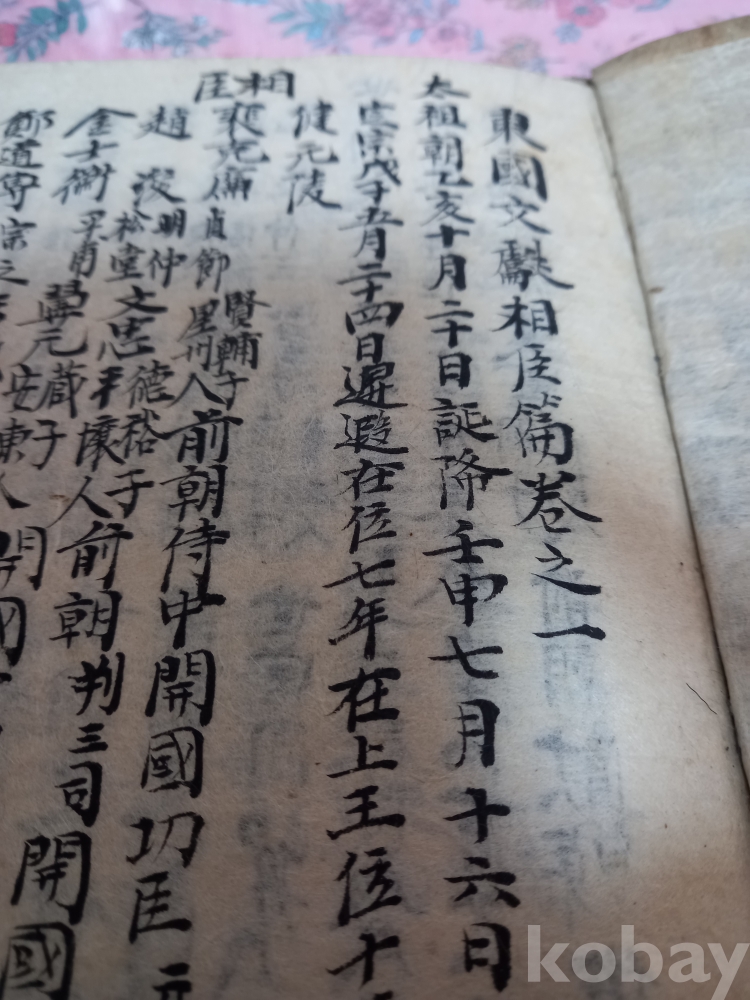 東國文獻相臣篇卷之一
太祖朝乙亥十月二十日誕降壬申七月十六日
定宗戊子五月二十四日遐在位七年在上王位十
健元陵
相臣
裴克廉 貞節 賢輔子 星州人 前朝侍中開國功臣
趙浚 明仲 松堂 文忠 德裕子 平壤人 前朝判三司開國
金士衡 平甫 翼元 蕆子 安東人 開國
鄭道傳 宗之
kobay